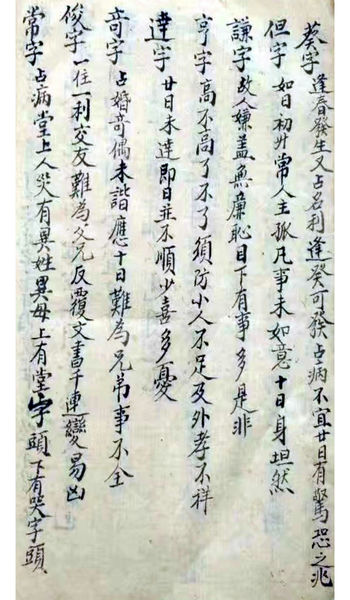 葵字 逢春發生又占名利逢癸可發占病不宜廿日有驚恐之兆
但字 如日初升常人主孤凡事未如意十日身坦然
謙字 故人嫌盖無廉恥目下有事多是非
亨字 高不高了不了須防小人不足及外孝不祥
達字 廿日未達即日並不順少喜多憂
奇字 占婚奇偶未諧應十日難為兄弟事不全
俊字 一住一利交友難為父兄反覆文書干連變易凶
常字 占病堂上人哭有異姓異母上有堂字頭下有哭字頭